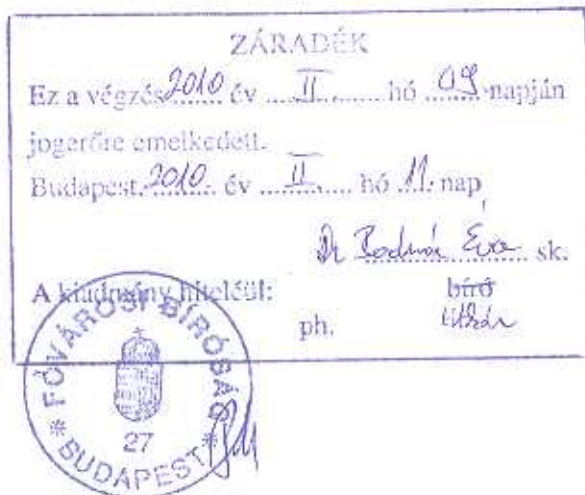 ZÁRADÉK
Ez a végzés 2010 év II. hó 09 napján
jogerőre emelkedett.
Budapest, 2010. év II. hó 11. nap
Dr Bodnár Éva sk.
A kiadmány hiteléül:
bíró
titkár
ph.
FŐVÁROSI BÍRÓSÁG
27
* BUDAPEST *